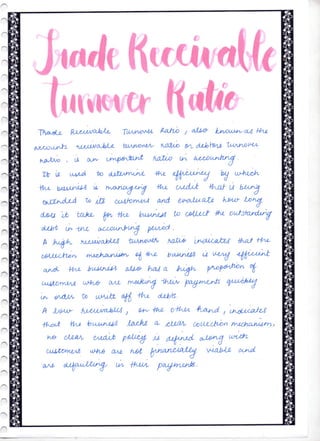 Trade Receivable
Turnover Ratio
Trade Receivable Turnover Ratio, also known as the
accounts receivable turnover ratio or debtors turnover
ratio, is an important ratio in accounting
It is used to determine the efficiency by which
the business is managing the credit that is being
extended to its customers and evaluate how long
does it take for the business to collect the outstanding
debt in the accounting period.
A high receivables turnover ratio indicates that the
collection mechanism of the business is very efficient
and the business also has a high proportion of
customers who are making their payments quickly
in order to write off the debts.
A lower receivables, on the other hand, indicates
that the business lacks a clear collection mechanism,
no clear credit policy is defined along with
customers who are not financially viable and
are defaulting in their payments.